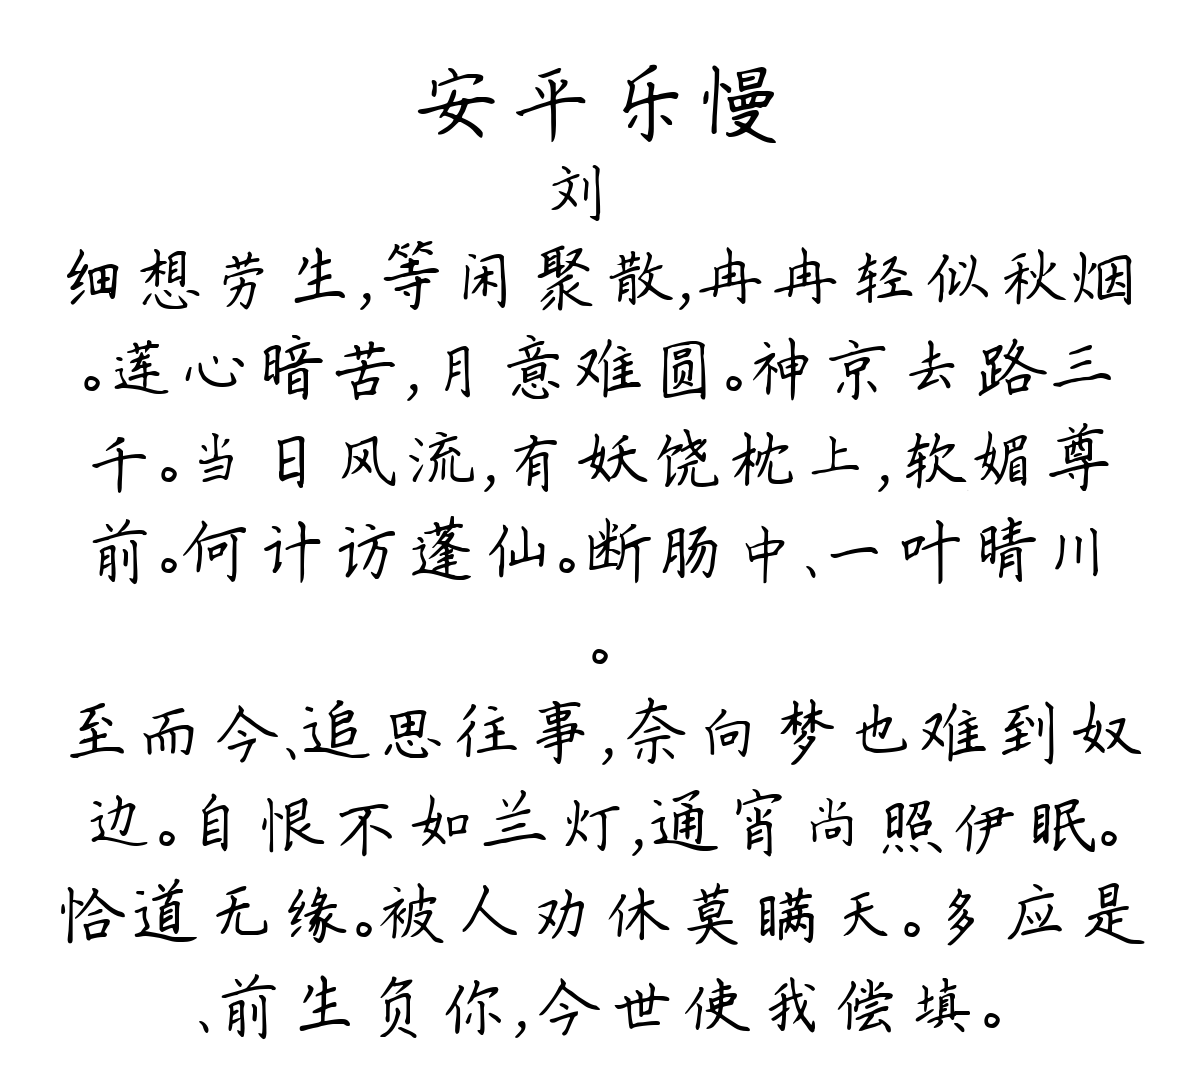 安平乐慢
刘
细想劳生,等闲聚散,冉冉轻似秋烟
。莲心暗苦,月意难圆。神京去路三
千。当日风流,有妖饶枕上,软媚尊
前。何计访蓬仙。断肠中、一叶晴川
。
至而今、追思往事,奈向梦也难到奴
边。自恨不如兰灯,通宵尚照伊眠。
恰道无缘。被人劝休莫瞒天。多应是
、前生负你,今世使我偿填。